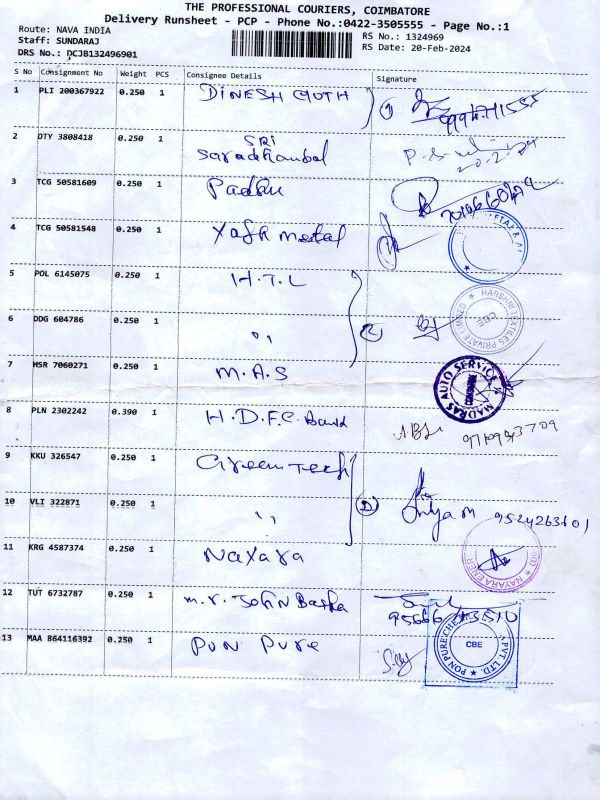 THE PROFESSIONAL COURIERS, COIMBATORE
Delivery Runsheet - PCP - Phone No.:0422-3505555 - Page No.:1
Route: NAVA INDIA
Staff: SUNDARAJ
DRS No.: DCJB132496901
RS No.: 1324969
RS Date: 20-Feb-2024
S No Consignment No Weight PCS Consignee Details Signature
1 PLI 200367922 0.250 1 DINESH CLOTH 1
2 DTY 3808418 0.250 1 SRI
Saradhambal
20.2.24
3 TCG 50581609 0.250 1
4 TCG 50581548 0.250 1 Metal
5 POL 6145075 0.250 1 H.T.L
HARSHNI TEXTILES PRIVATE LIMITED CBE
6 DDG 604786 0.250 1 " 2
7 HSR 7060271 0.250 1 M.A.S
MADRAS AUTO SERVICE
8 PLN 2302242 0.390 1 H.D.F.C. Bank
9 KKU 326547 0.250 1 Green Tech
10 VLI 322871 0.250 1 " 2 9524263601
11 KRG 4587374 0.250 1 Nayara
NAYARA ENER
12 TUT 6732787 0.250 1 M.r. John Basha
13 MAA 864116392 0.250 1 PON PURE
PON PURE CHE Y PVT LTD. CBE